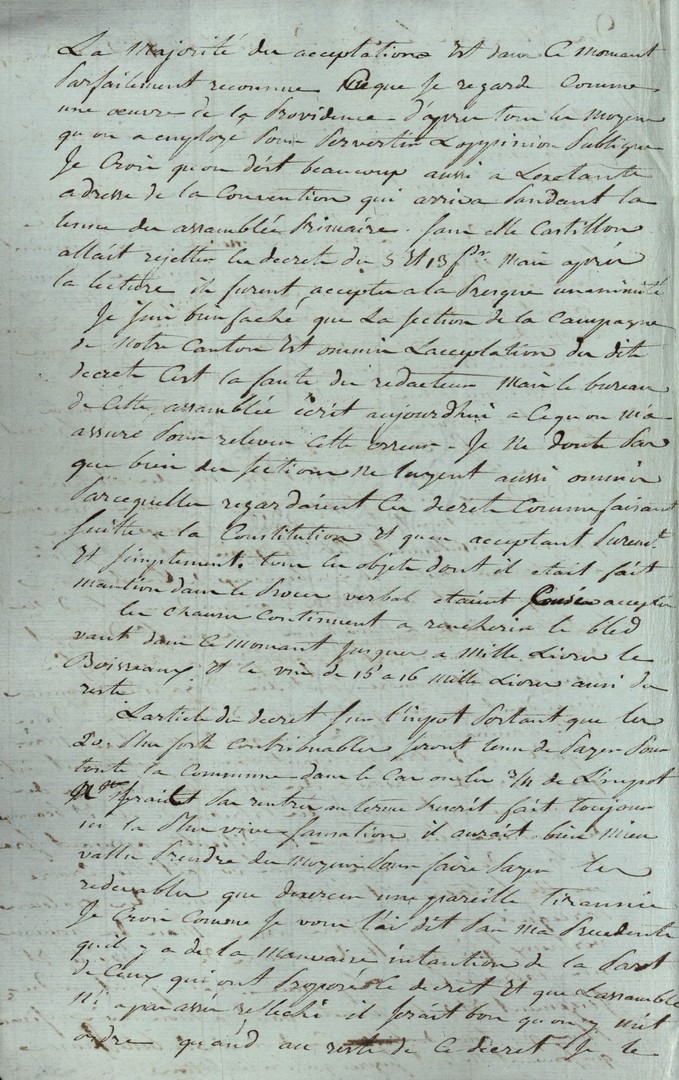 La majorité des acceptations Est dans Ce moment
parfaitement reconnue Ce que Je regarde Comme
une oeuvre de la Providence d'après tous les moyens
qu'on a employe pour pervertir L'oppinion publique
Je Crois qu'on doit beaucoup aussi a L'exelante
adresse de la Convention qui arriva pandant la
tenue des assamblée primaire. sans elle Castillon
allait rejetter les decrets du 5 Et 13 f.or Mais après
la lecture ils furent accepter a la presque unanimité
Je suis bien faché que La section de la Campagne
de Notre Canton Est ommis L'acceptation du dit
decrets C'est la faute du redacteur Mais le bureau
de Cette assamblée écrit aujourdhui a Cequ'on m'a
assuré pour relever Cette erreur. Je Ne doute pas
que bien des sections ne l'ayent aussi ommis
parcequelles regardaient Ces decrets Comme faisant
suitte a la Constitution Et qu'en acceptant puremt
Et simplement. tous les objets dont il etait fait
mantion dans le proces verbal etaient Censés accepter
les chauses Continuent a rancherir le bled
vaut dans Ce moment jusques a Mille Livres le
Boisseaux, Et le vin de 15 a 16 Mille Livres ainsi du
reste
L'article du decret sur l'inpot portant que les
20. plus forts contribuables seront tenu de payer pour
toute la Commune dans le Cas ou les 3/4 de L'inpot
serait pas rentrer au terme prescrit fait toujours
ici la plus vive sansation il aurait bien mieu
vallu prendre des moyens pour faire payer les
redevables que d'exercer une pareille tirannie
Je Crois Comme Je vous l'ai dit par ma precedente
qu'il y a de la mauvaise intantion de la part
de Ceux qui ont proposé le decret Et que L'assamblée
N'i a pas assés refléchi il serait bon qu'on y mit
ordre quand au reste de Ce decret Je le